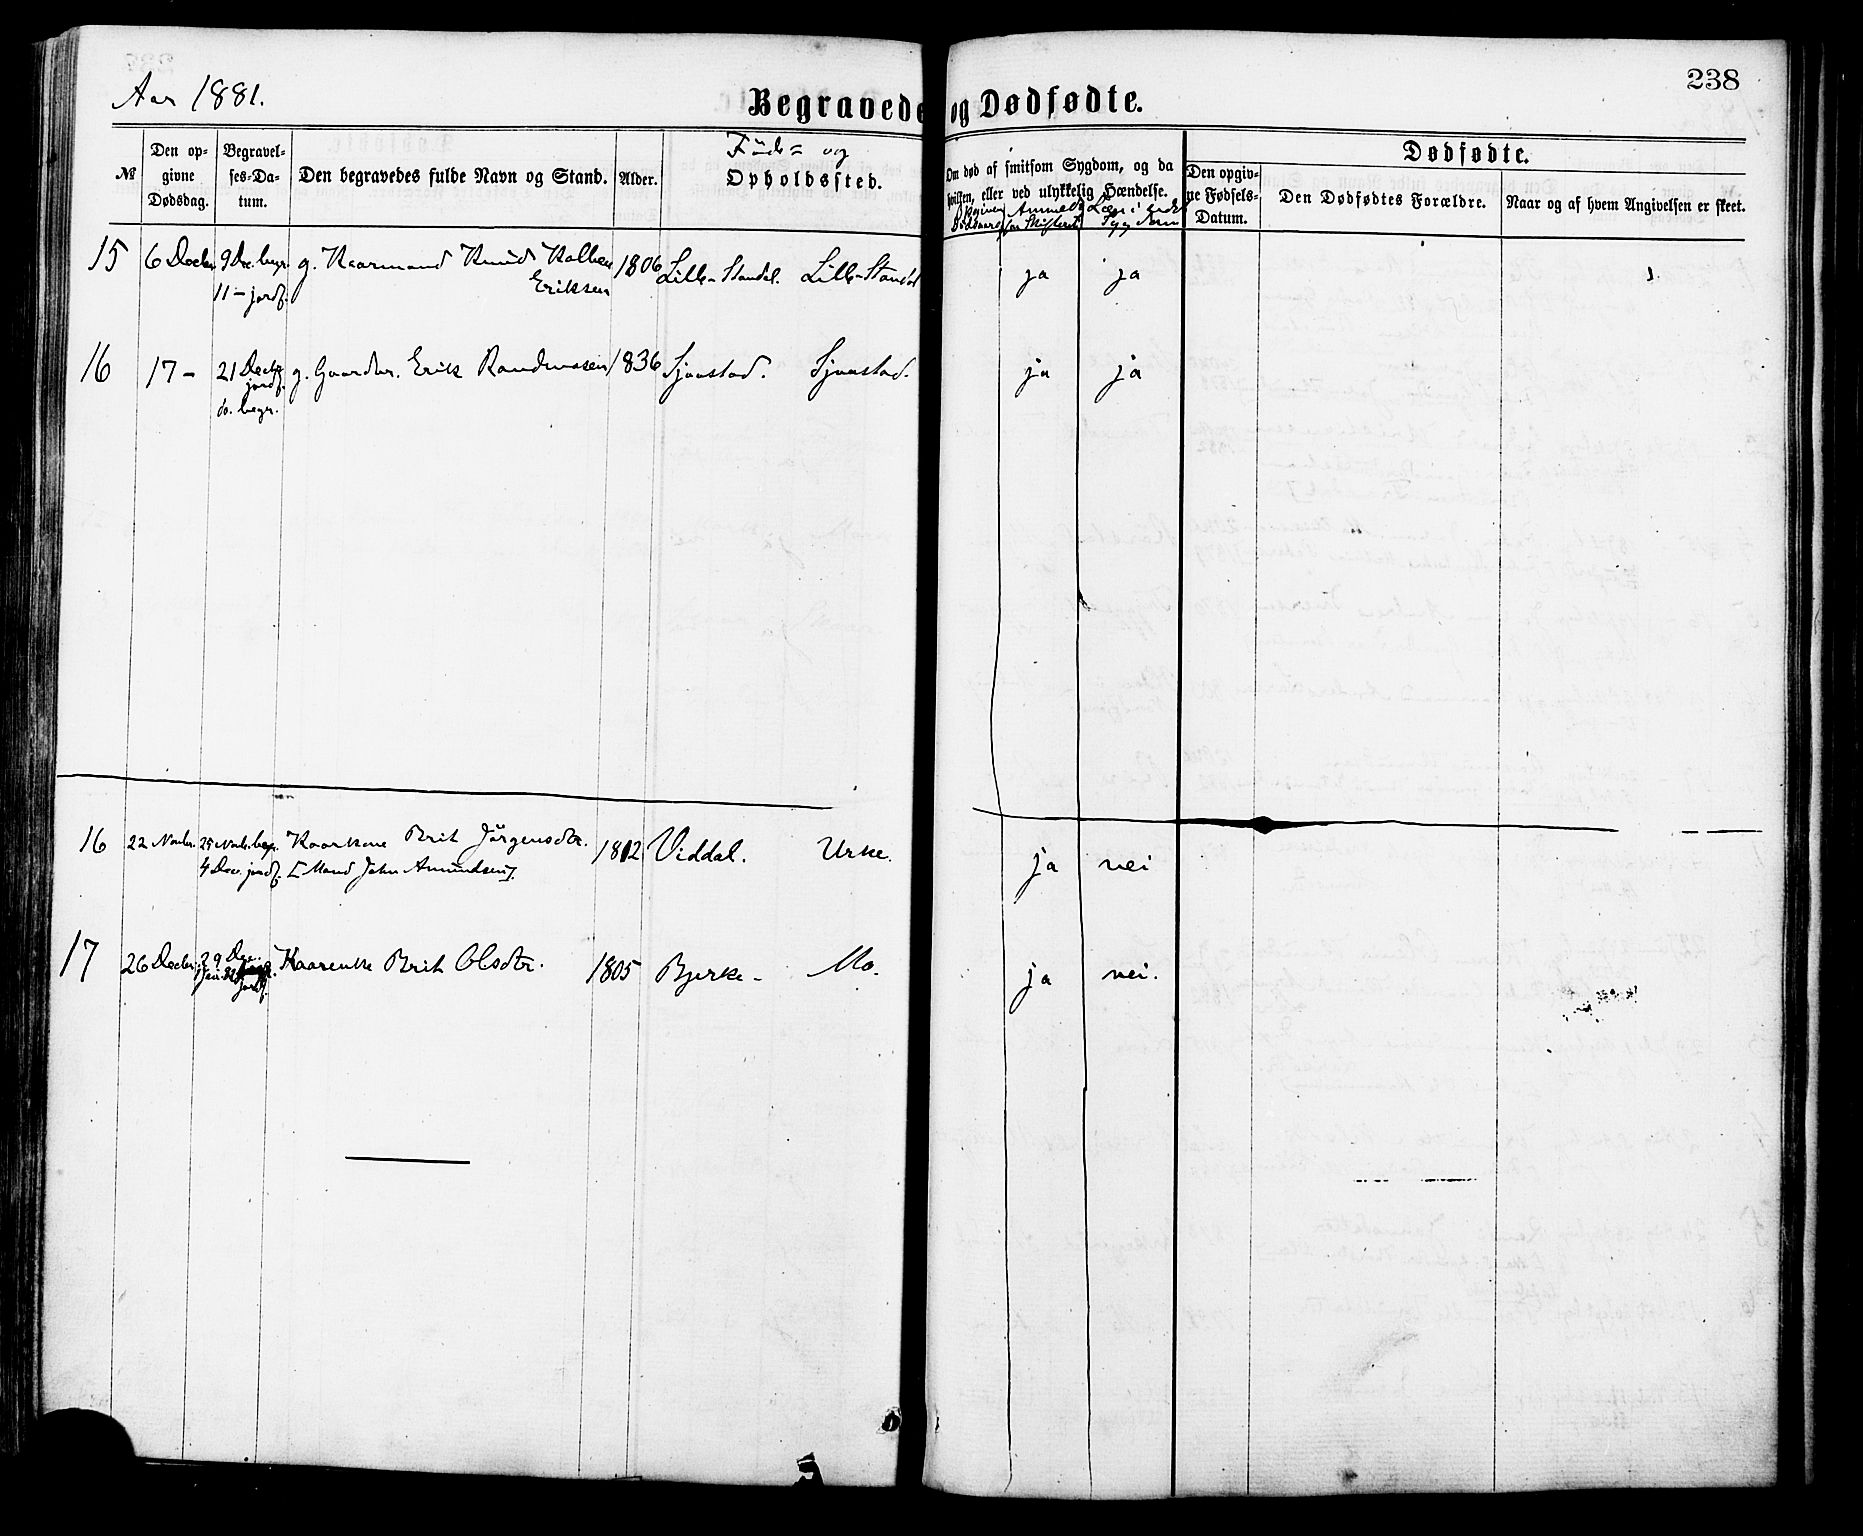 Aar 1881.
Begravede og Dødfødte.
238
№
Den op-
givne
Dødsdag.
Begravel-
ses-Da-
tum.
Den begravedes fulde Navn og Stand.
Alder.
Føde- og
Opholdssted.
Om død af smitsom Sygdom, og da
hvilken, eller ved ulykkelig Hændelse.
Anmeldt Læge i sidste
for Skifteret Sygdom
Dødfødte.
Den opgiv-
ne Fødsels-
Datum.
Den Dødfødtes Forældre.
Naar og af hvem Angivelsen er skeet.
15 6 Decbr 9 Dec. begr. g. Kaarmand Knud Kolbein 1806 Lille-Standal. Lille-Standal ja ja
11 – jordf. Eriksen
16 17 – 21 Decbr g. Gaardbr. Erik Rasmussen 1836 Sjaastad. Sjaastad. ja ja
jordf.
do. begr.
16 22 Novbr. 25 Novbr. begr. Kaarkone Brit Jörgensdtr. 1812 Viddal. Urke. ja nei
4 Dec. jordf. [Mand John Amundsen].
17 26 Decbr. 29 Dec. Kaarenke Brit Olsdtr. 1805 Bjerke – Mo. ja nei.
jordf.